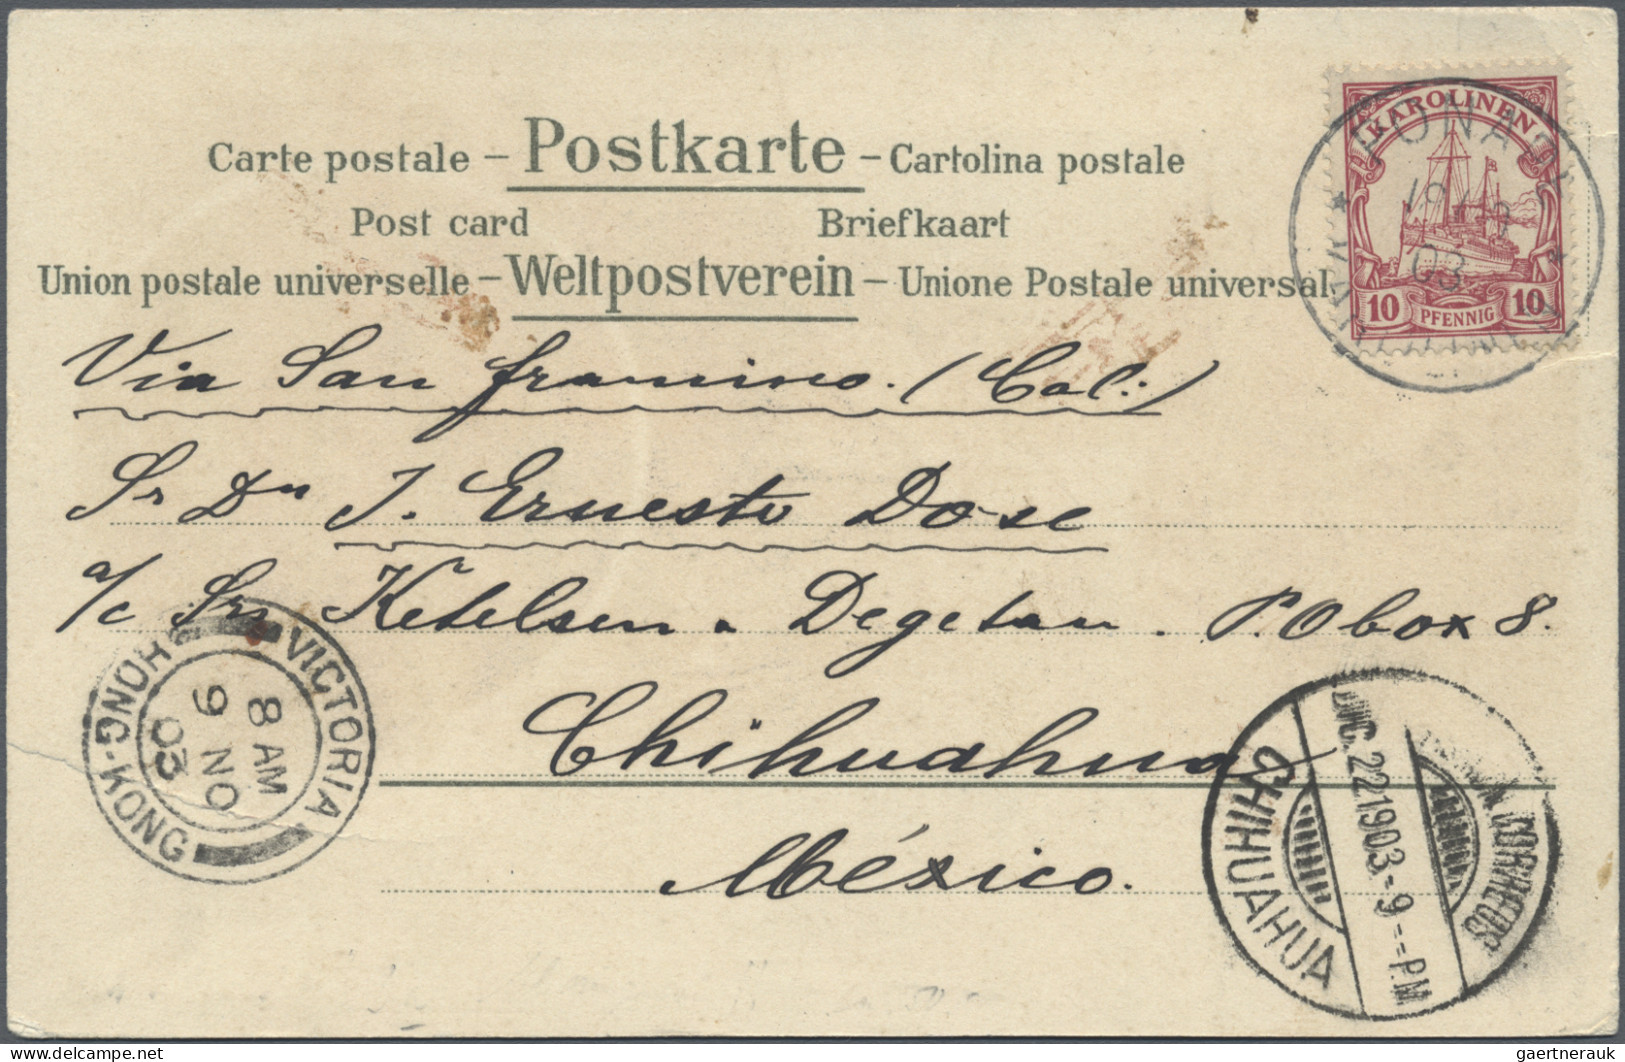 Carte postale – Postkarte – Cartolina postale
Post card Briefkaart
Union postale universelle – Weltpostverein – Unione Postale universal
KAROLINEN
10 PFENNIG 10
PONAPE
03
Via San Francisco. (Cal:)
Sr Dn J. Ernesto Dose
a/c Srs Ketelsen & Degetau. P.O box 8.
Chihuahua
México.
VICTORIA
8 AM
9 NO
03
HONG-KONG
CORREOS
22 1903 - 9 - P.M
CHIHUAHUA
gaertnerauk